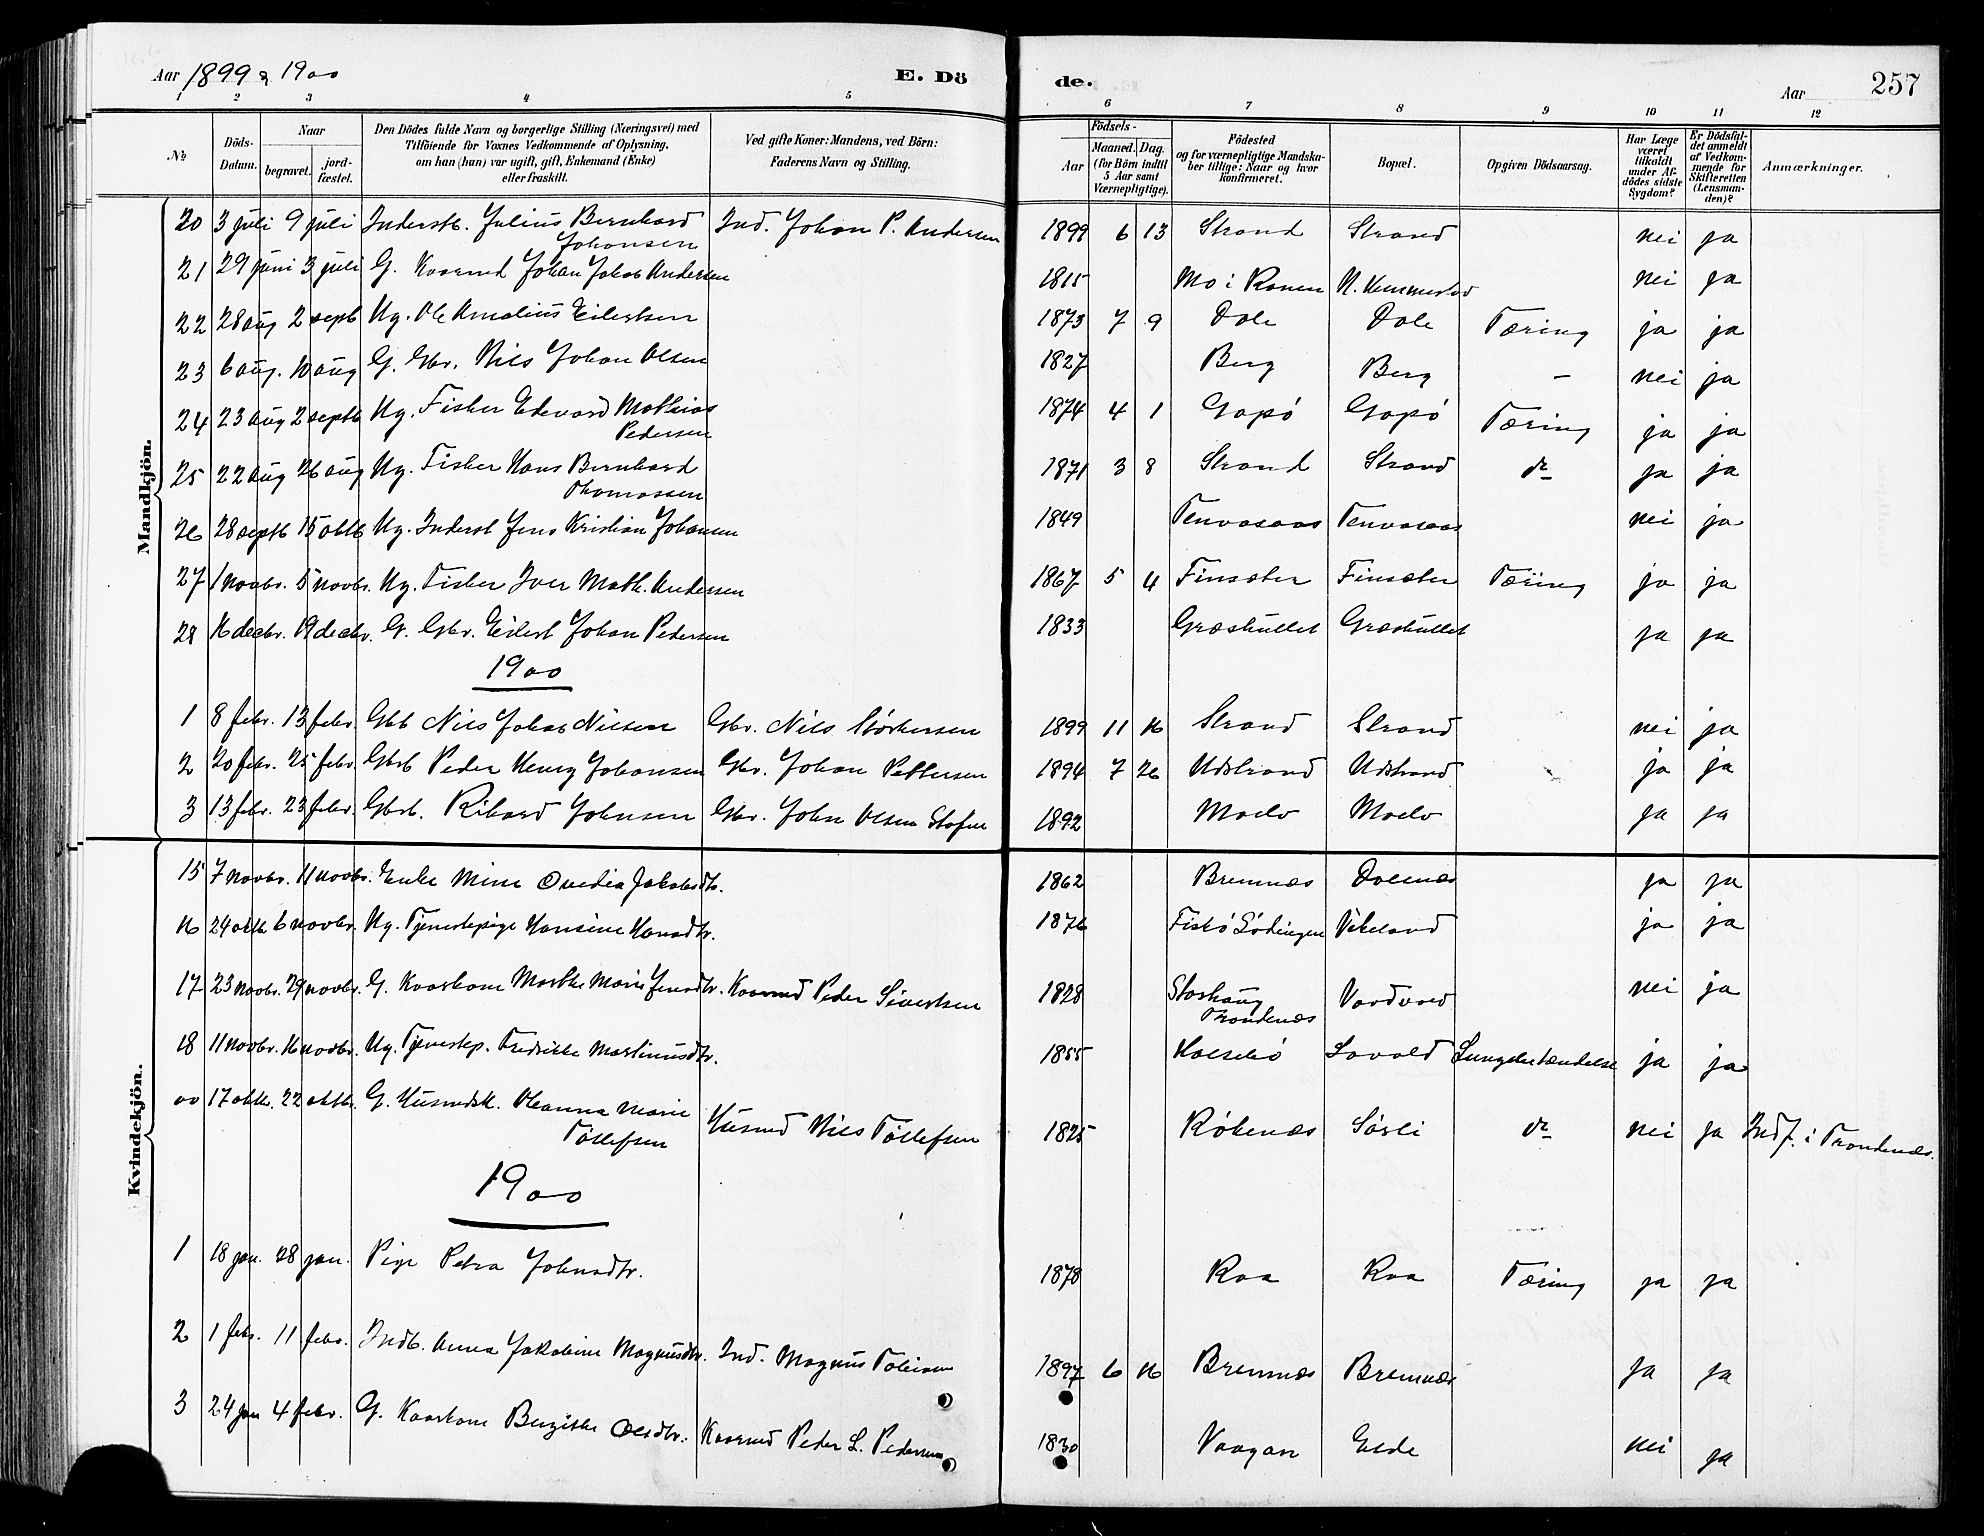 Aar 1899 & 1900 E. Dö de. Aar 257
1 2 3 4 5 6 7 8 9 10 11 12
No
Döds-Datum.
Naar
begravet.
jord-fæstet.
Den Dödes fulde Navn og borgerlige Stilling (Næringsvei) med
Tilföiende for Voxnes Vedkommende af Oplysning,
om han (hun) var ugift, gift, Enkemand (Enke)
eller fraskilt.
Ved gifte Koner: Mandens, ved Börn:
Faderens Navn og Stilling.
Födsels-
Aar
Maaned. Dag.
(for Börn indtil
5 Aar samt
Værnepligtige).
Födested
og for værnepligtige Mandska-
ber tillige: Naar og hvor
konfirmeret.
Bopæl.
Opgiven Dödsaarsag.
Har Læge
været
tilkaldt
under Af-
dödes sidste
Sygdom?
Er Dödsfal-
det anmeldt
af Vedkom-
mende for
Skifteretten
(Lensman-
den)?
Anmærkninger.
Mandkjön.
20 3 juli 9 juli Inderstb. Julius Bernhard Johansen Ind. Johan P. Andersen 1899 6 13 Strand Strand nei ja
21 29 juni 3 juli G. Kaarmd Johan Jakob Andersen 1815 Mo i Ranen N. Hemmestad nei ja
22 28 aug 2 septb Ug. Ole Amalius Eilertsen 1873 7 9 Dale Dale Tæring ja ja
23 6 aug. 10 aug G. Gbr. Nils Johan Olsen 1827 Berg Berg — nei ja
24 23 aug 2 septb Ug. Fisker Edevard Mathias Pedersen 1874 4 1 Gapö Gapö Tæring ja ja
25 22 aug 26 aug Ug. Fisker Hans Bernhard Thomassen 1871 3 8 Strand Strand do ja ja
26 28 septb 15 oktb Ug. Inderst Jens Kristian Johansen 1849 Tenvasaas Tenvasaas nei ja
27 1 novbr. 5 novbr. Ug. Fisker Iver Math. Andersen 1867 5 4 Finsæter Finsæter Tæring ja ja
28 16 decbr. 19 decbr. G. Gbr. Eilert Johan Pedersen 1833 Græshullet Græshullet ja ja
1900
1 8 febr. 13 febr. Gbb Nils Johan Nilsen Gbr. Nils Störkersen 1899 11 16 Strand Strand nei ja
2 20 febr. 25 febr. Gbrb Peder Henry Johansen Gbr. Johan Pettersen 1894 7 26 Udstrand Udstrand ja ja
3 13 febr. 23 febr. Gbrb. Rikard Johnsen Gbr. John Olsen 1892 Moelv Moelv ja ja
Kvindekjön.
15 7 novbr. 11 novbr. Enke Mine Ovedia Jakobsdtr. 1862 Bremnæs ja ja
16 24 oktb. 6 novbr. Ug. Tjenestepige Hansine Hansdtr. 1876 Fiskö Lödingen Vikeland ja ja
17 23 novbr. 29 novbr. G. Kaarkone Marthe Marie Jensdtr. Kaarmd Peder Sivertsen 1828 Storhaug Trondenæs nei ja
18 11 novbr. 16 novbr. Ug. Tjenestep. Fredrikke Martinusdtr. 1855 Lavold Lungebetændelse ja ja
17 oktb. 22 oktbr. G. Husmdsk. Oleanna Marie Tollefsen Husmd Nils Tollefsen 1825 Rökenæs Sörli do nei ja Indf. i Trondenæs.
1900
1 18 jan. 28 jan. Pige Petra Johnsdtr. 1878 Raa Raa Tæring ja ja
2 1 febr. 11 febr. Indb. Anna Jakobine Magnusdtr. Ind. Magnus Tobiasen 1897 6 16 Bremnæs Bremnæs ja ja
3 24 jan 4 febr. G. Kaarkone Bergitte Olsdtr. Kaarmd Peder L. Pedersen 1830 Vaagan Elde nei ja